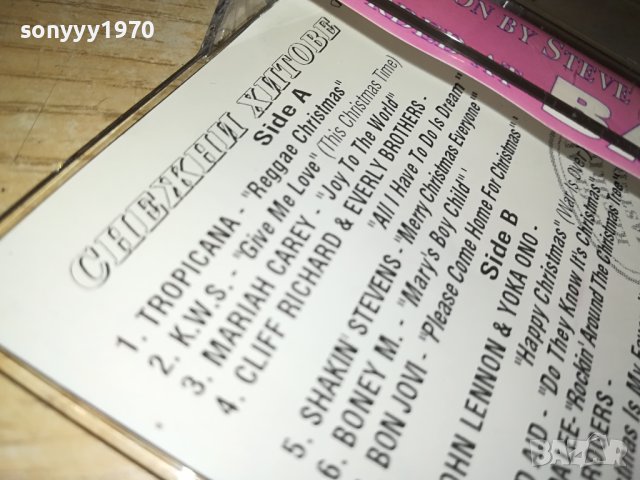 sonyyy1970
ON BY STEVE
СНЕЖНИ ХИТОВЕ
Side A
1. TROPICANA - "Reggae Christmas"
2. K.W.S. - "Give Me Love" (This Christmas Time)
3. MARIAH CAREY - "Joy To The World"
4. CLIFF RICHARD & EVERLY BROTHERS -
"All I Have To Do Is Dream"
5. SHAKIN' STEVENS - "Merry Christmas Everyone"
6. BONEY M. - "Mary's Boy Child"
BON JOVI - "Please Come Home For Christmas"
Side B
OHN LENNON & YOKA ONO -
"Happy Christmas" (War is Over)
AID - "Do They Know It's Christmas"
"Rockin' Around The Christmas Tree"
BAZAR